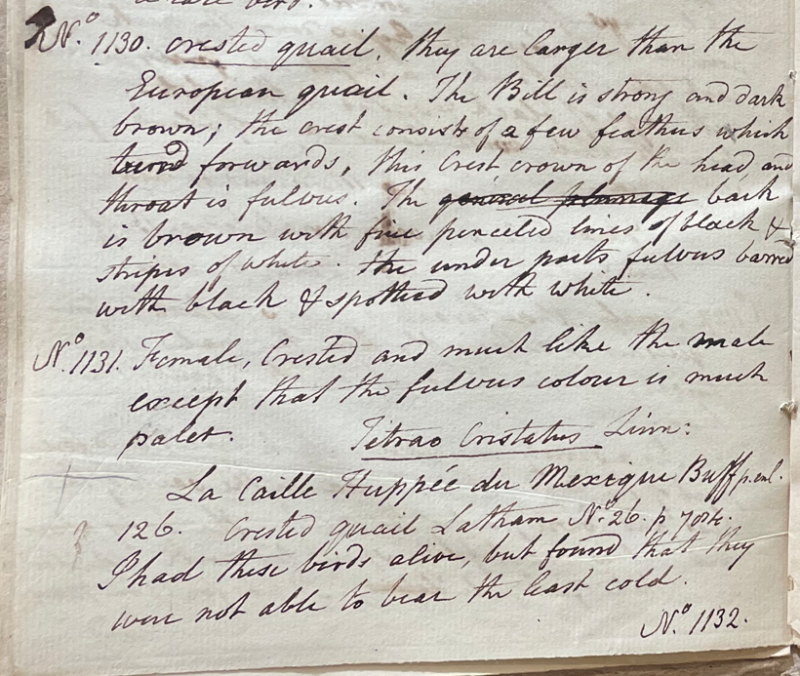 a rare bird.
No. 1130. crested quail. they are larger than the
European quail. The Bill is strong and dark
brown; the crest consists of a few feathers which
forwards, this Crest crown of the head and
throat is fulvous. The general plumage back
is brown with fine penceled lines of black &
stripes of white. the under parts fulvous barred
with black & spotted with white.
No. 1131. Female, Crested and much like the male
except that the fulvous colour is much
paler. Tetrao Cristatus Linn:
La Caille Huppée du Mexique Buff p. enl.
126. Crested quail Latham No. 26. p
I had these birds alive, but found that they
were not able to bear the least cold.
No. 1132.